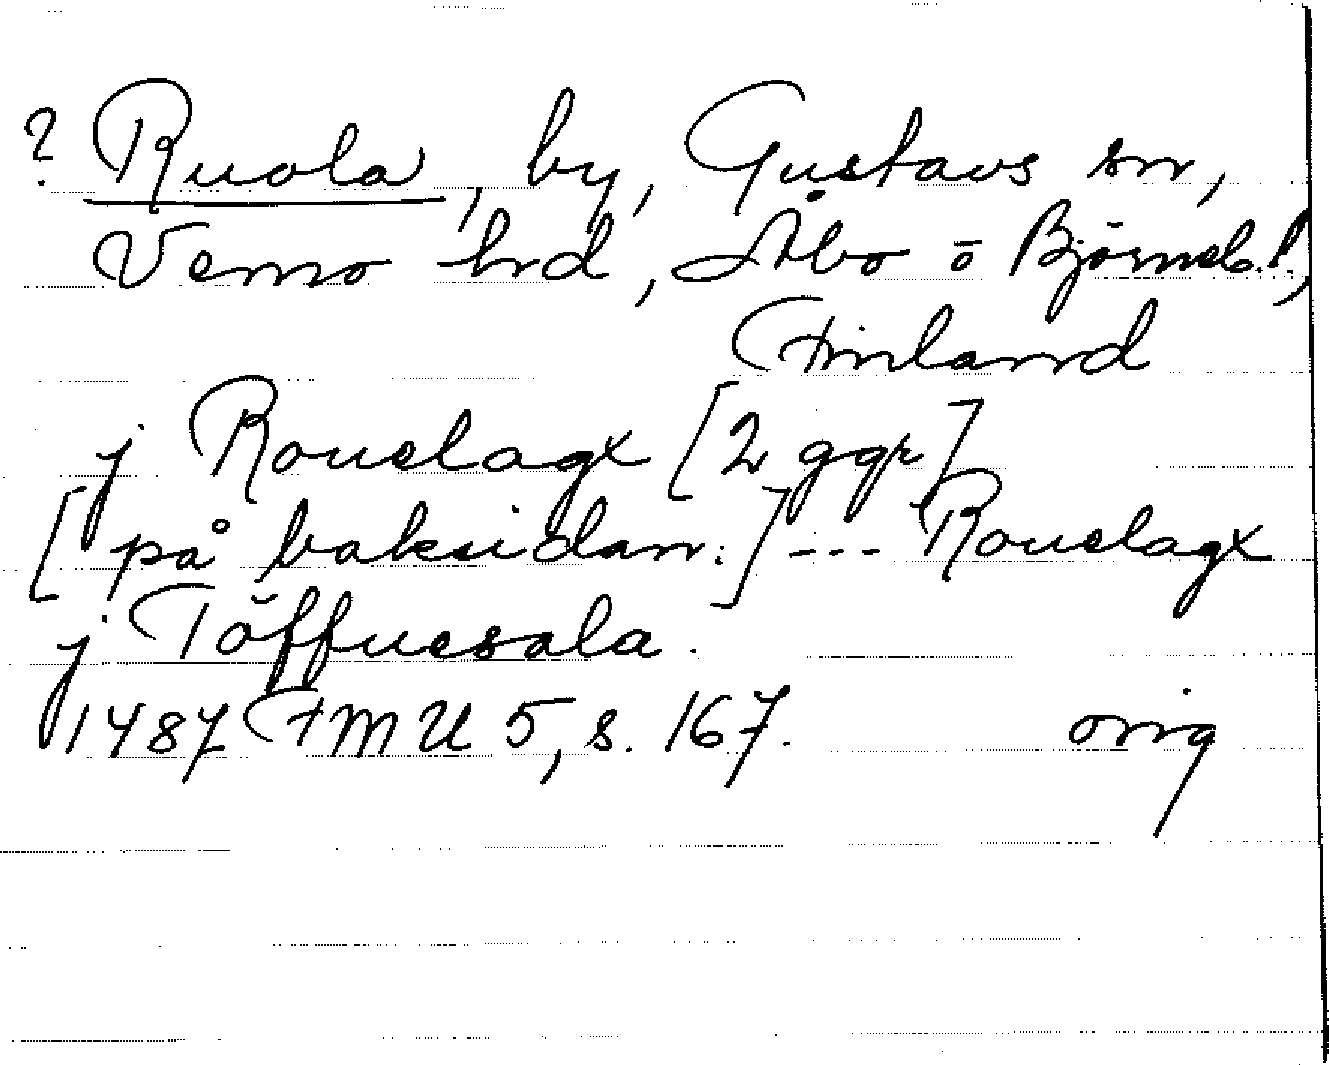 ? Ruola, by, Gustavs sn,
Vemo hrd, Åbo o Björneb.l,
Finland
j Rouelagx [2 ggr]
[på baksidan:] --- Rouelagx
j Töffuesala.
1487 FMU 5, s. 167. orig